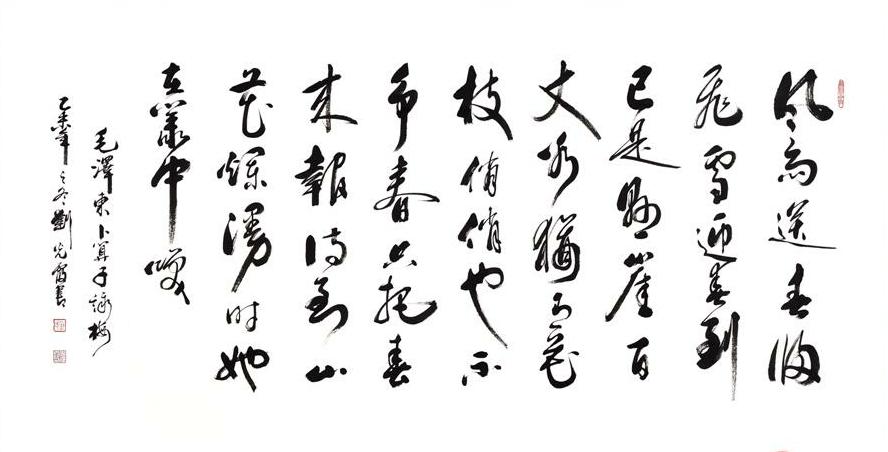 风雨送春归
飛雪迎春到
已是悬崖百
丈冰猶有花
枝俏俏也不
争春只把春
来報待到山
花爛漫时她
在叢中咲
毛澤東卜算子詠梅
乙未年之冬劉書